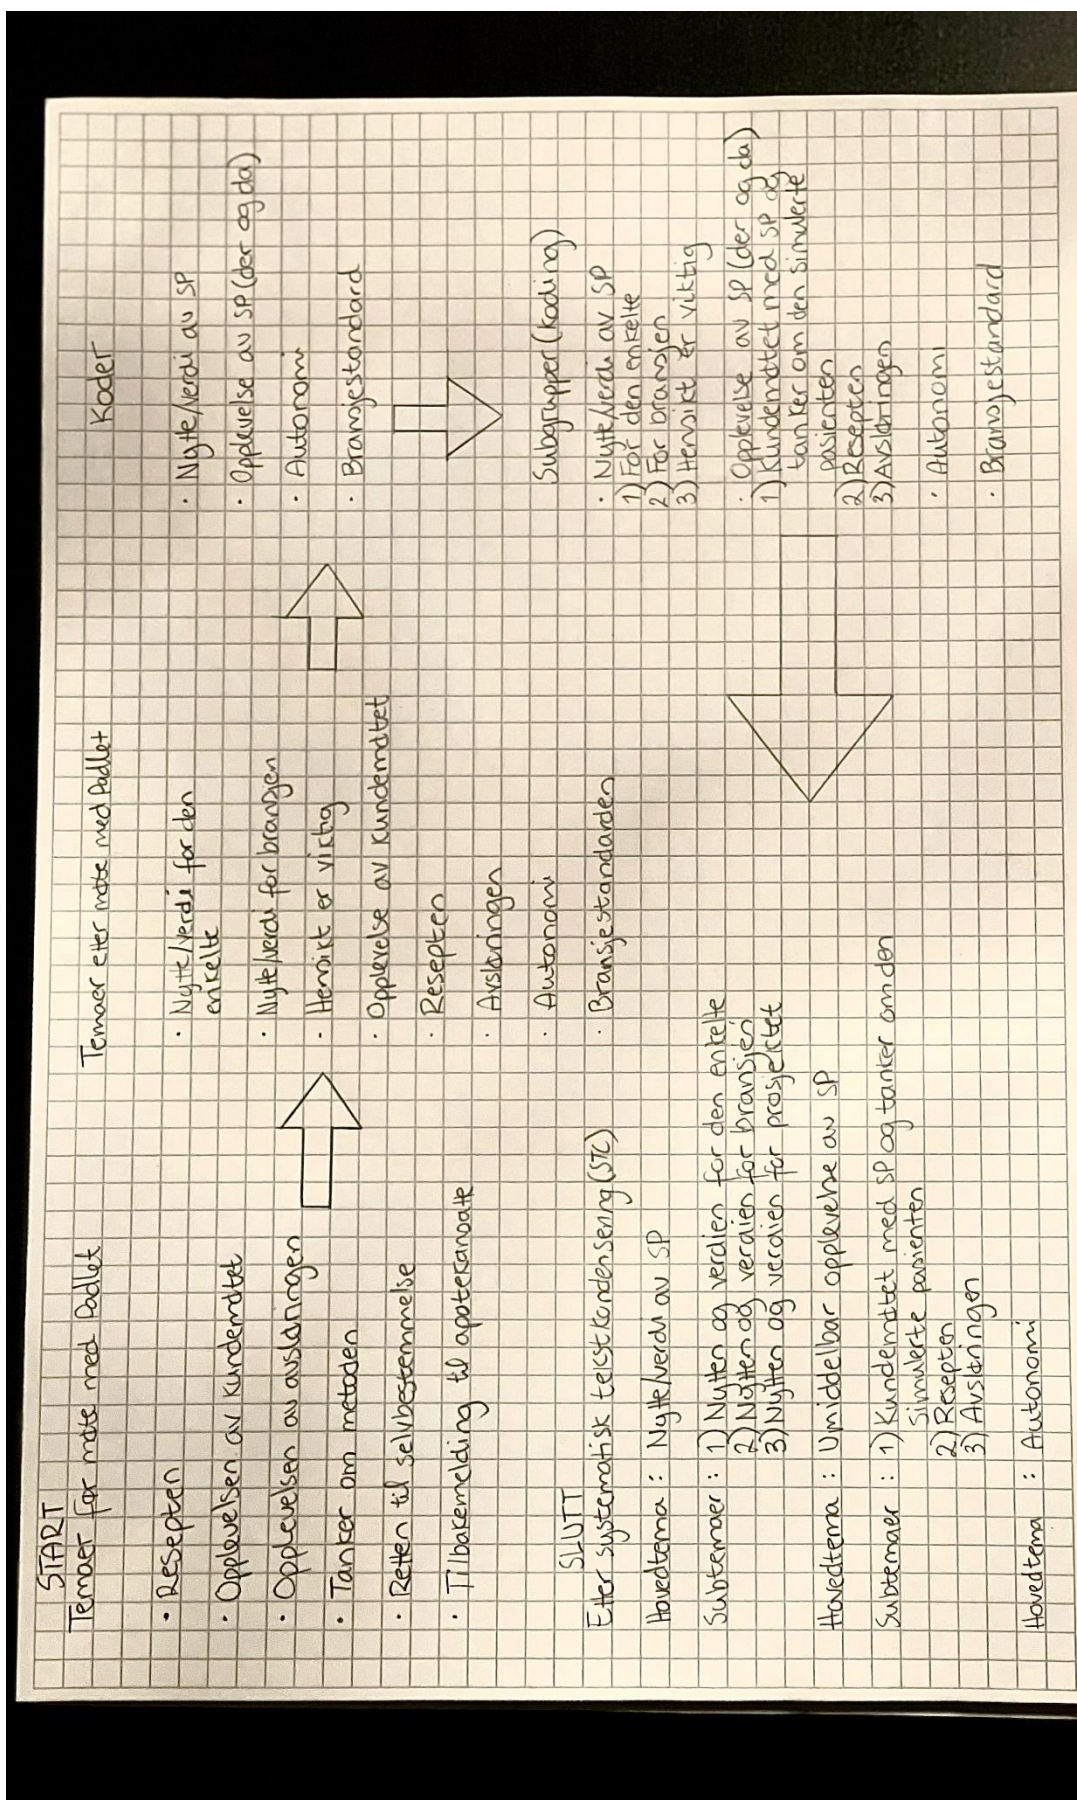 START
Temaer før møte med Padlet
· Resepten
· Opplevelsen av kundemøtet
· Opplevelsen av avsløringen
· Tanker om metoden
· Retten til selvbestemmelse
· Tilbakemelding til apotekansatte
Temaer etter møte med Padlet
· Nytte/verdi for den
enkelte
· Nytte/verdi for bransjen
· Hensikt er viktig
· Opplevelse av kundemøtet
· Resepten
· Avsløringen
· Autonomi
· Bransjestandarden
Koder
· Nytte/verdi av SP
· Opplevelse av SP (der og da)
· Autonomi
· Bransjestandard
Subgrupper (koding)
· Nytte/verdi av SP
1) For den enkelte
2) For bransjen
3) Hensikt er viktig
· Opplevelse av SP (der og da)
1) Kundemøtet med SP og
tanker om den simulerte
pasienten
2) Resepten
3) Avsløringen
· Autonomi
· Bransjestandard
SLUTT
Etter systematisk tekstkondensering (STC)
Hovedtema : Nytte/verdi av SP
Subtemaer : 1) Nytten og verdien for den enkelte
2) Nytten og verdien for bransjen
3) Nytten og verdien for prosjektet
Hovedtema : Umiddelbar opplevelse av SP
Subtemaer : 1) Kundemøtet med SP og tanker om den
simulerte pasienten
2) Resepten
3) Avsløringen
Hovedtema : Autonomi